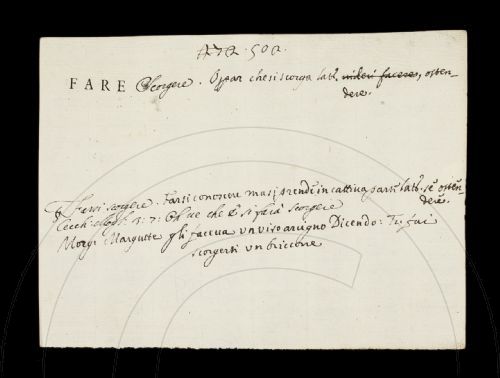 500.
FARE Scorgere. Oprar che si scorga lat. videri facere, osten-
dere.
Farsi scorgere. Farsi conoscere ma si prende in cattiva parte lat. se osten-
dere.
3: 7: che si farà scorgere
Morg: Margutte gli faceva un viso arcigno Dicendo: Tu fai
scorgerti un briccone